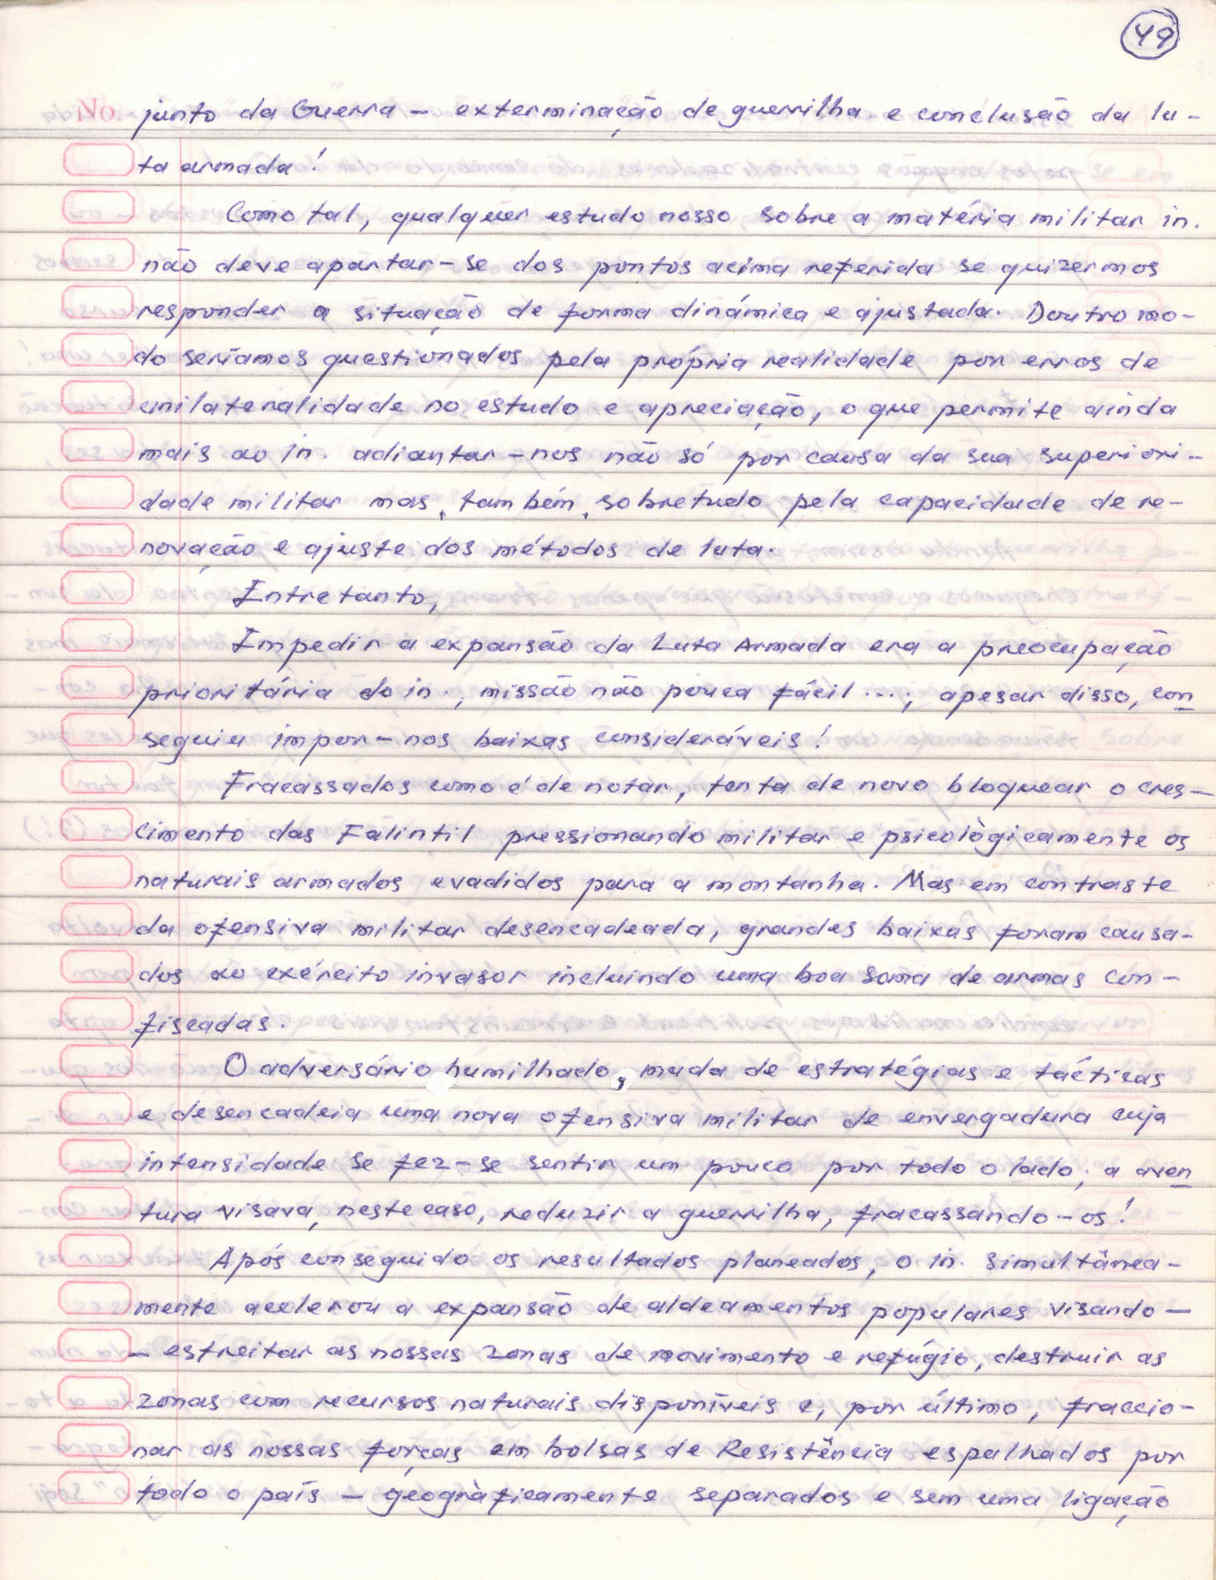 49
junto da Guerra - exterminação de guerrilha e conclusão da lu-
ta armada!
Como tal, qualquer estudo nosso sobre a matéria militar in.
não deve apartar-se dos pontos acima referida se quizermos
responder a situação de forma dinámica e ajustada. Doutro mo-
do seríamos questionados pela própria realidade por erros de
unilateralidade no estudo e apreciação, o que permite ainda
mais ao in. adiantar-nos não só por causa da sua superiori-
dade militar mas, também, sobretudo pela capacidade de re-
novação e ajuste dos métodos de luta.
Entretanto,
Impedir a expansão da Luta Armada era a preocupação
prioritária do in., missão não pouca fácil ...; apesar disso, con
seguiu impor-nos baixas consideráveis!
Fracassados como é de notar, tenta de novo bloquear o cres-
cimento das Falintil pressionando militar e psicològicamente os
naturais armados evadidos para a montanha. Mas em contraste
da ofensiva militar desencadeada, grandes baixas foram causa-
dos ao exército invasor incluindo uma boa soma de armas con-
fiscadas.
O adversário humilhado, muda de estratégias e tácticas
e desencadeia uma nova ofensiva militar de envergadura cuja
intensidade se fez-se sentir um pouco por todo o lado; a aven
tura visava, neste caso, reduzir a guerrilha, fracassando-os!
Após conseguido os resultados planeados, o in. simultânea-
mente acelerou a expansão de aldeamentos populares visando -
- estreitar as nossas zonas de movimento e refúgio, destruir as
zonas com recursos naturais disponíveis e, por último, fraccio-
nar as nossas forças em bolsas de Resistência espalhados por
todo o país - geogràficamente separados e sem uma ligação